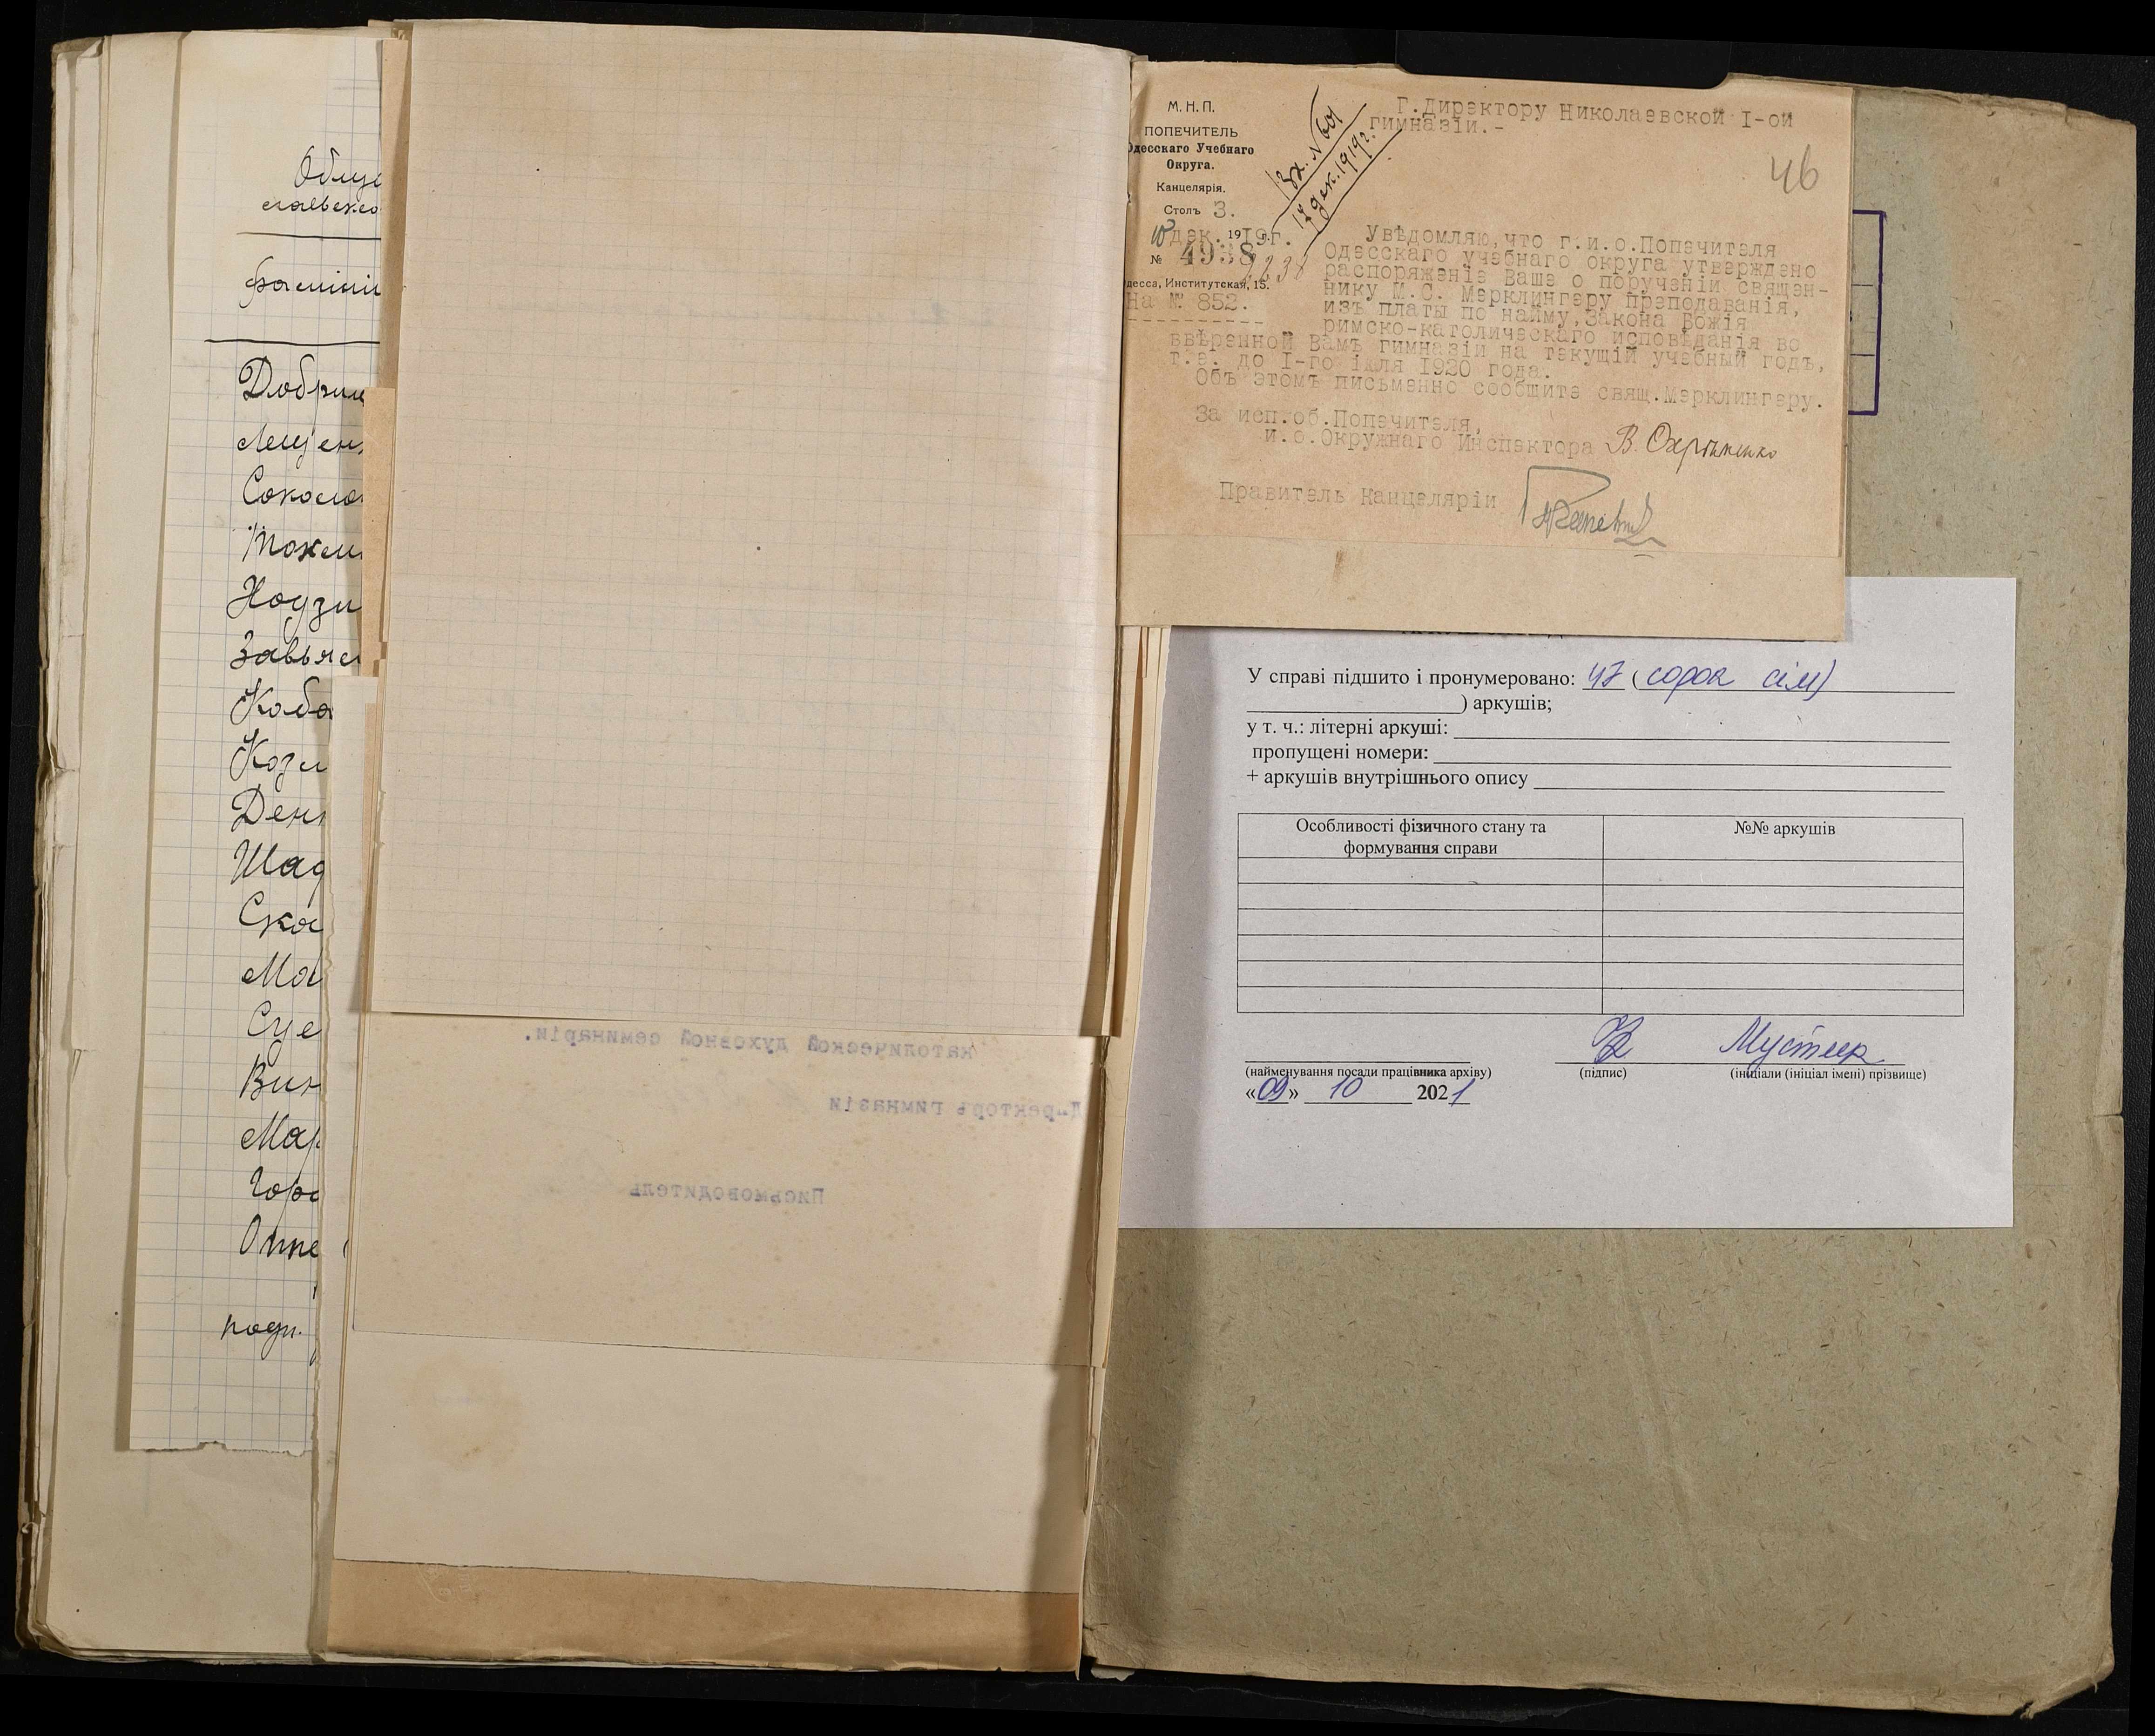 Общe
славско
фамилі
Добрин
Лещен
Соколо
Токм
Ноузи
Завьял
Коба
Козл
Ден
Шад
Ска
Ма
Суе
Вин
Мар
Горо
Оппе
подп.
католической духовной семинаріи.
Директоръ гимназіи
Письмоводитель
М. Н. П.
ПОПЕЧИТЕЛЬ
Одесскаго Учебнаго
Округа.
Канцелярія.
Столъ 3.
10 дек. 1919г.
№ 4938
2238
десса, Институтская, 15.
На № 852.
Вх. N 601
17 дек. 1919г.
Г.Директору Николаевской I-ой
гимназіи.-
46
Увѣдомляю,что г.и.о.Попечителя
Одесскаго учебнаго округа утверждено
распоряженіе Ваше о порученіи священ-
нику М.С. Мерклингеру преподаванія,
изъ платы по найму,Закона Божія
римско-католическаго исповѣданія во
ввѣренной Вамъ гимназіи на текущій учебный годъ,
т.е. до I-го іюля 1920 года.
Объ этомъ письменно сообщите свящ.Мерклингеру.
За исп.об.Попечителя,
и.о.Окружнаго Инспектора В. Охрименко
Правитель Канцеляріи
У справі підшито і пронумеровано: 47 (сорок сім)
) аркушів;
у т. ч.: літерні аркуші:
пропущені номери:
+ аркушів внутрішнього опису
Особливості фізичного стану та
формування справи
№№ аркушів
Мустеер
(найменування посади працівника архіву)
(підпис)
(ініціали (ініціал імені) прізвище)
«09» 10 2021